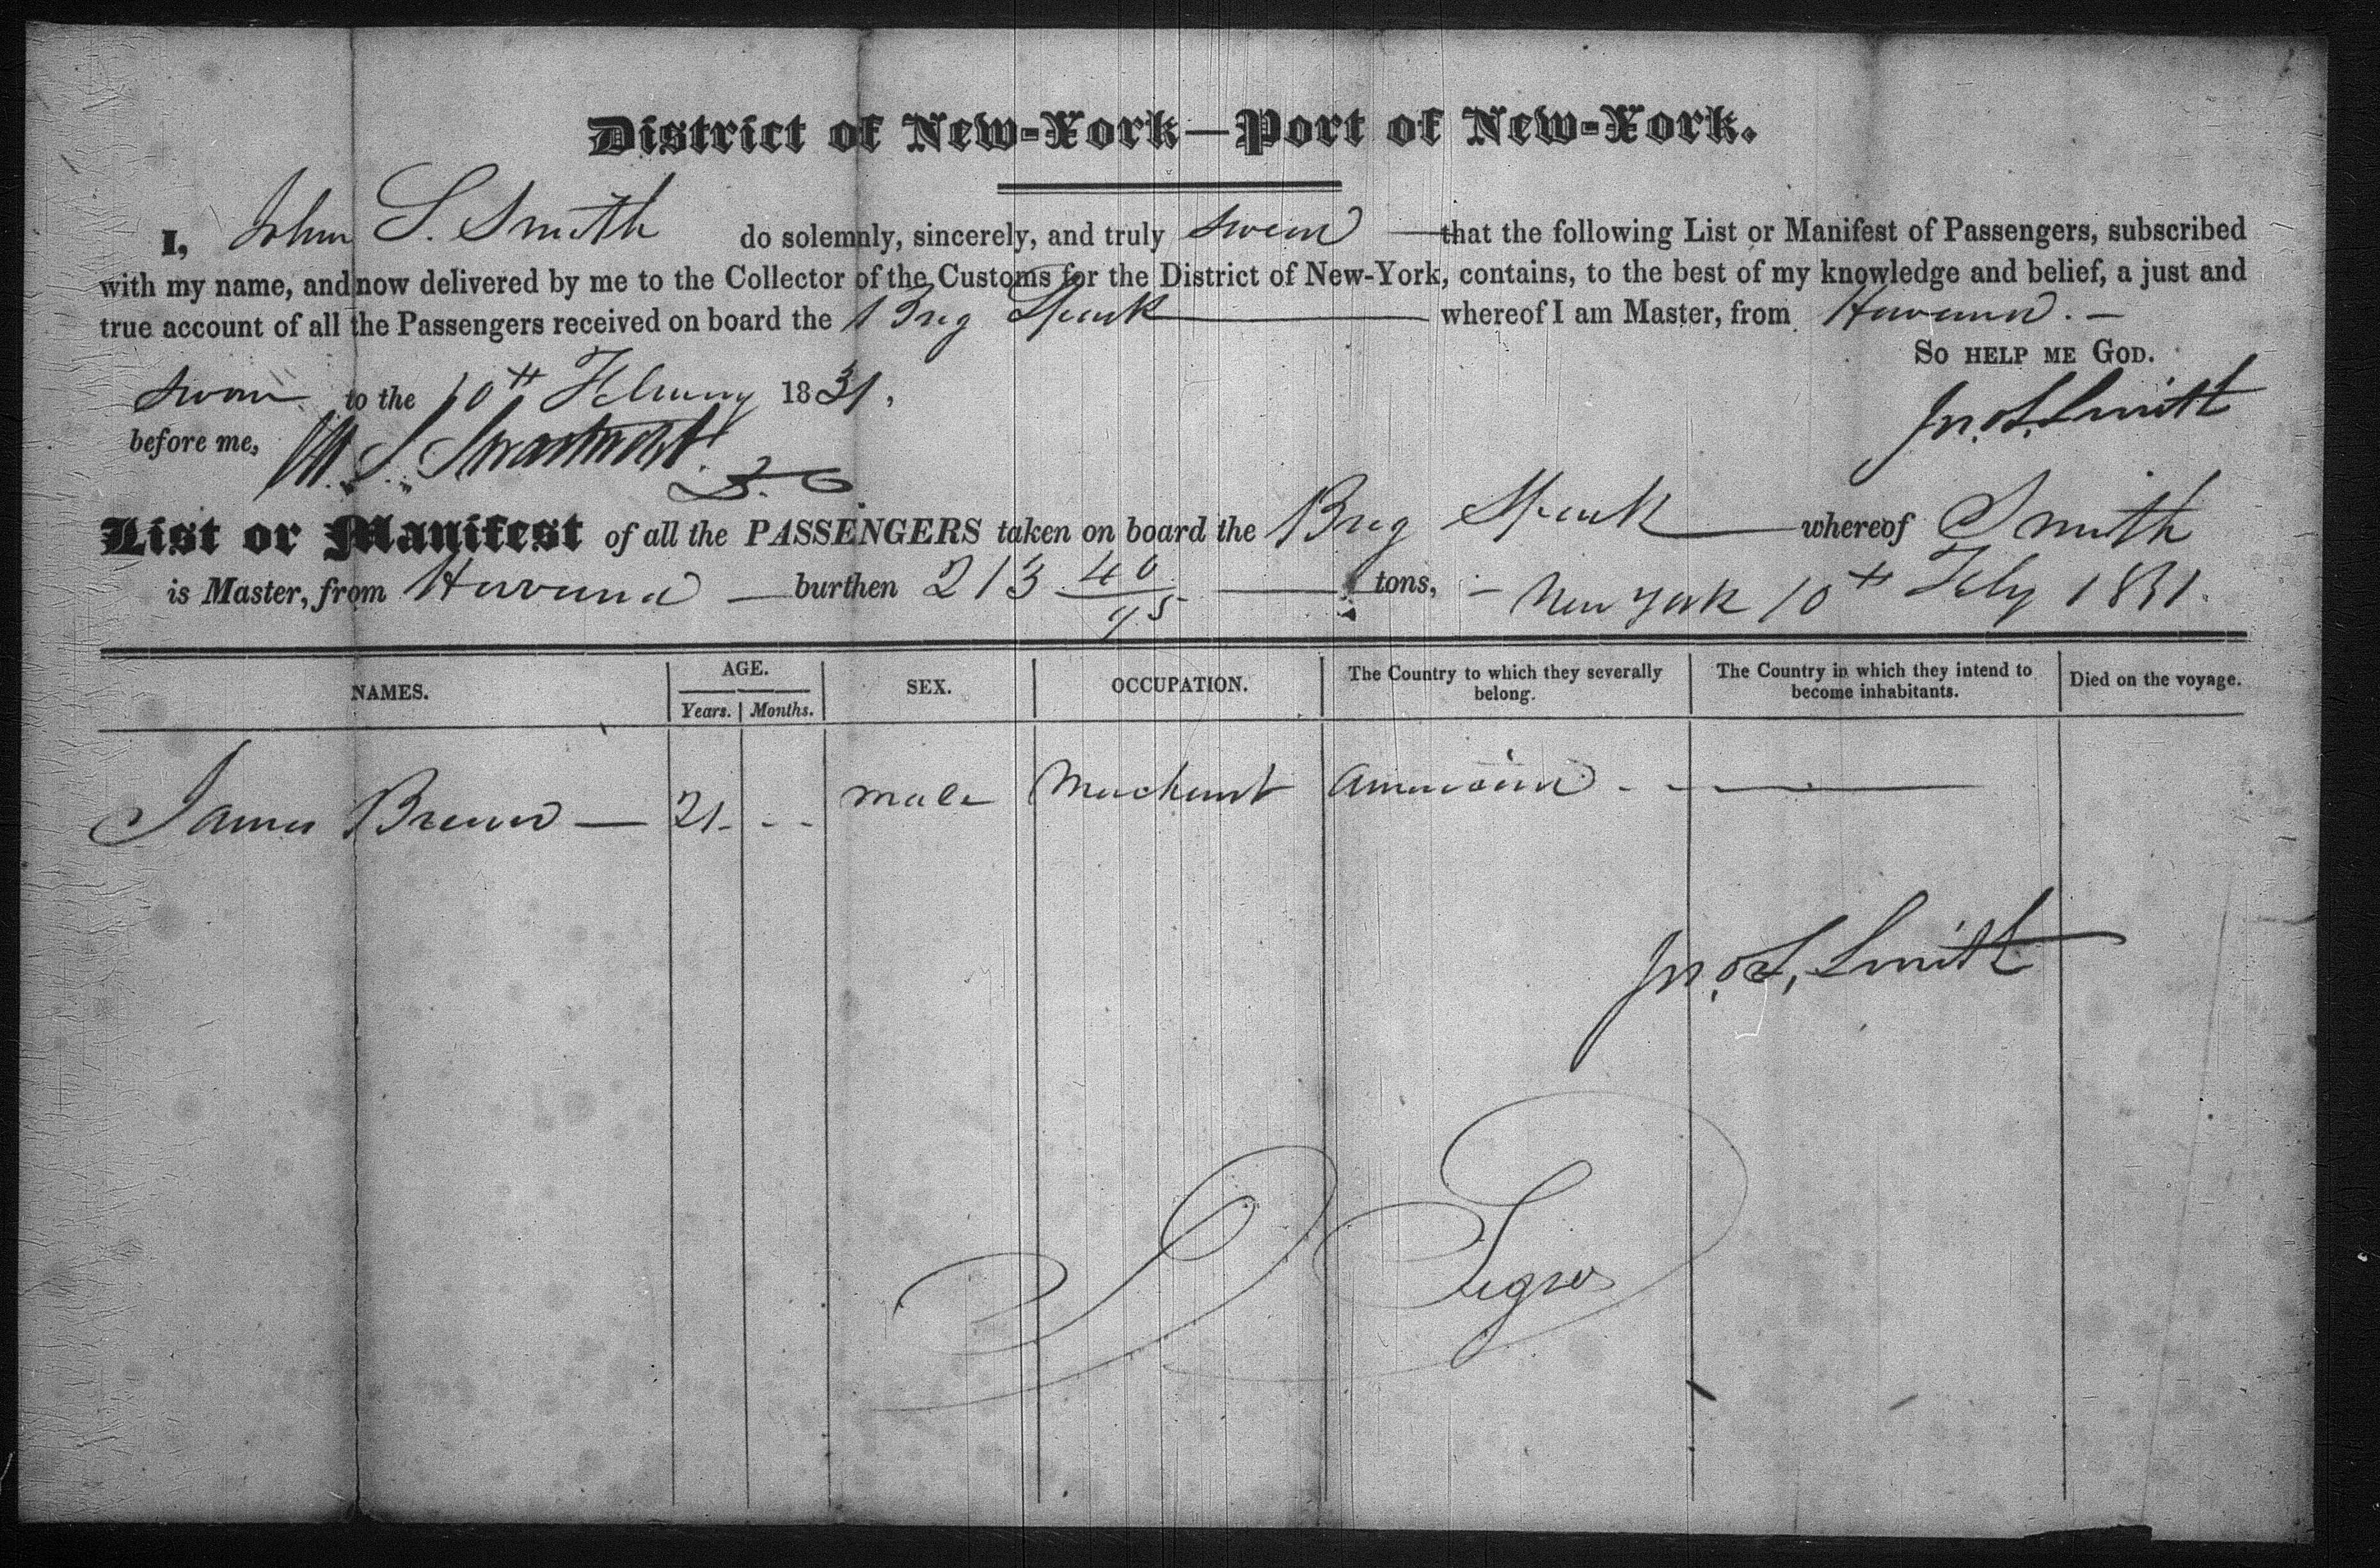 District of New-York—Port of New-York.
I, John S. Smith do solemnly, sincerely, and truly swear — that the following List or Manifest of Passengers, subscribed
with my name, and now delivered by me to the Collector of the Customs for the District of New-York, contains, to the best of my knowledge and belief, a just and
true account of all the Passengers received on board the Brig Spark — whereof I am Master, from Havana. —
So help me God.
Sworn to the 10th February 1831,
Jno. S. Smith
before me, S. Swartwout
List or Manifest of all the PASSENGERS taken on board the Brig Spark — whereof Smith
is Master, from Havana — burthen 213 40/95 — tons, – New York 10th Feby 1831.
NAMES. AGE. SEX. OCCUPATION. The Country to which they severally belong. The Country in which they intend to become inhabitants. Died on the voyage.
Years. Months.
James Brown — 21 - - - male Merchant American - - —
Jno. S. Smith
Segars